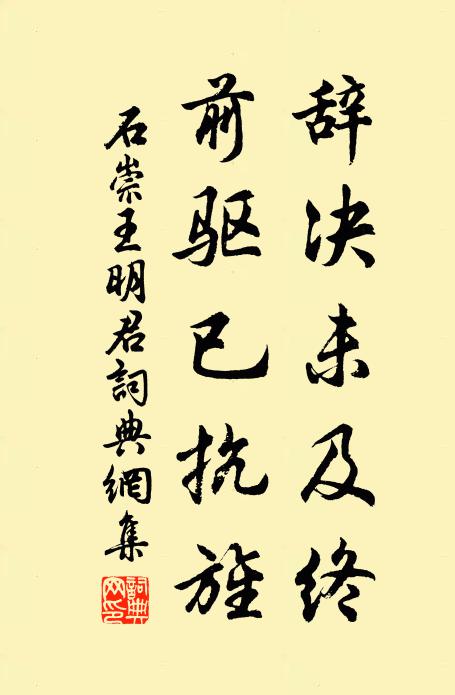 辞决未及终
前驱已抗旌
石崇王明君詞典網集
詞典网印